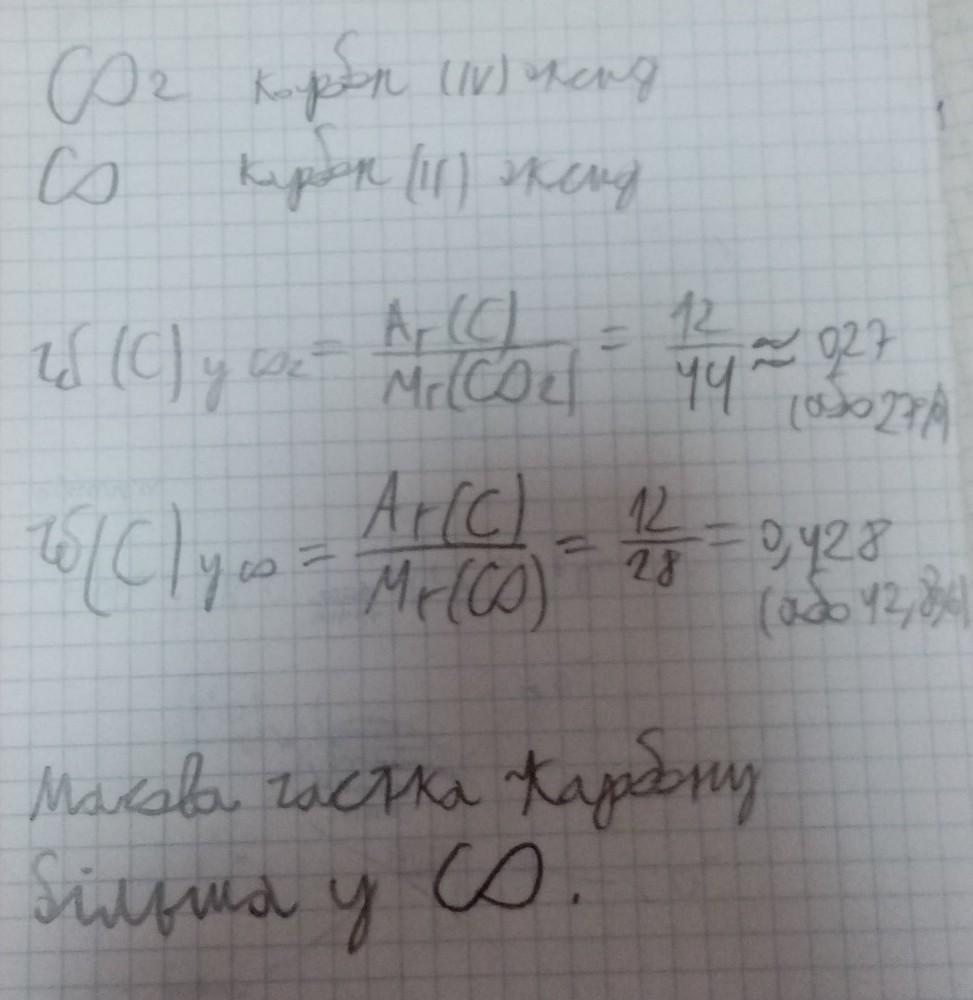 CO2 карбон (IV) оксид
CO карбон (II) оксид
w(C) у CO2 = Ar(C) / Mr(CO2) = 12 / 44 ≈ 0,27
(або 27%)
w(C) у CO = Ar(C) / Mr(CO) = 12 / 28 = 0,428
(або 42,8%)
Масова частка Карбону
більша у CO.